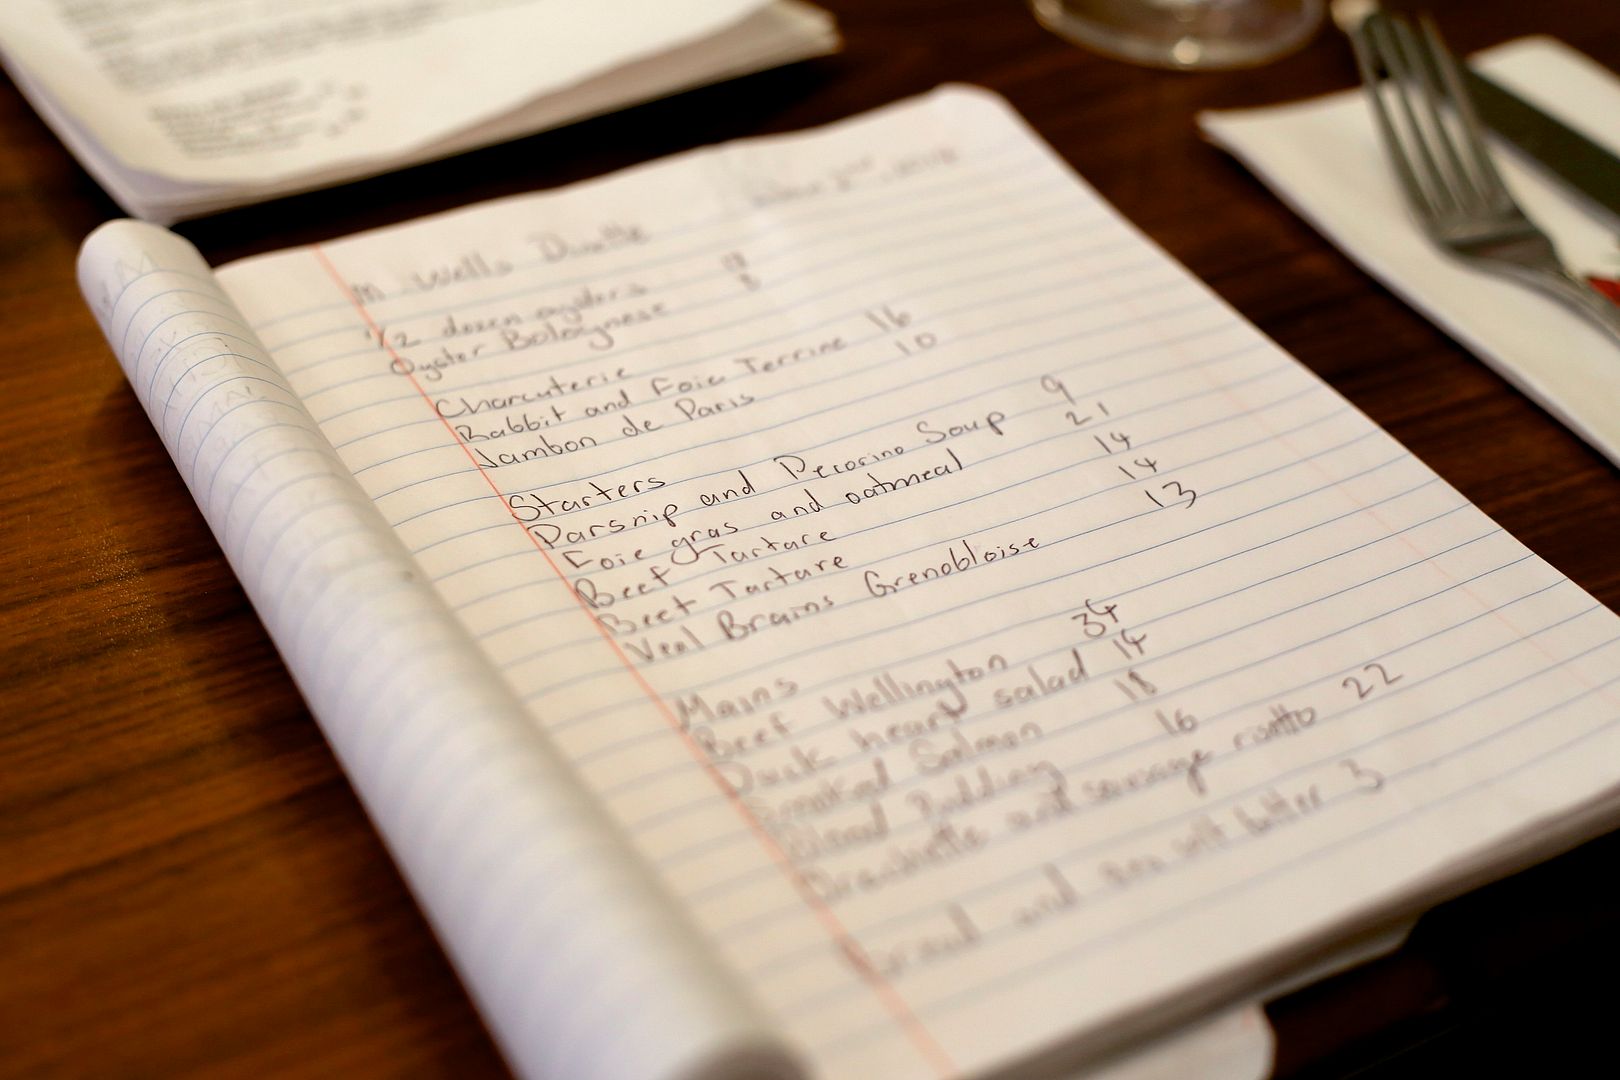 M. Wells Dinette
1/2 dozen oysters
Oyster Bolognese 8
Charcuterie
Rabbit and Foie Terrine 16
Jambon de Paris 10
Starters
Parsnip and Pecorino Soup 9
Foie gras and oatmeal 21
Beef Tartare 14
Beet Tartare 14
Veal Brains Grenobloise 13
Mains
Beef Wellington 34
Duck heart salad 14
Smoked Salmon 18
Blood Pudding 16
and sausage risotto 22
Bread and butter 3